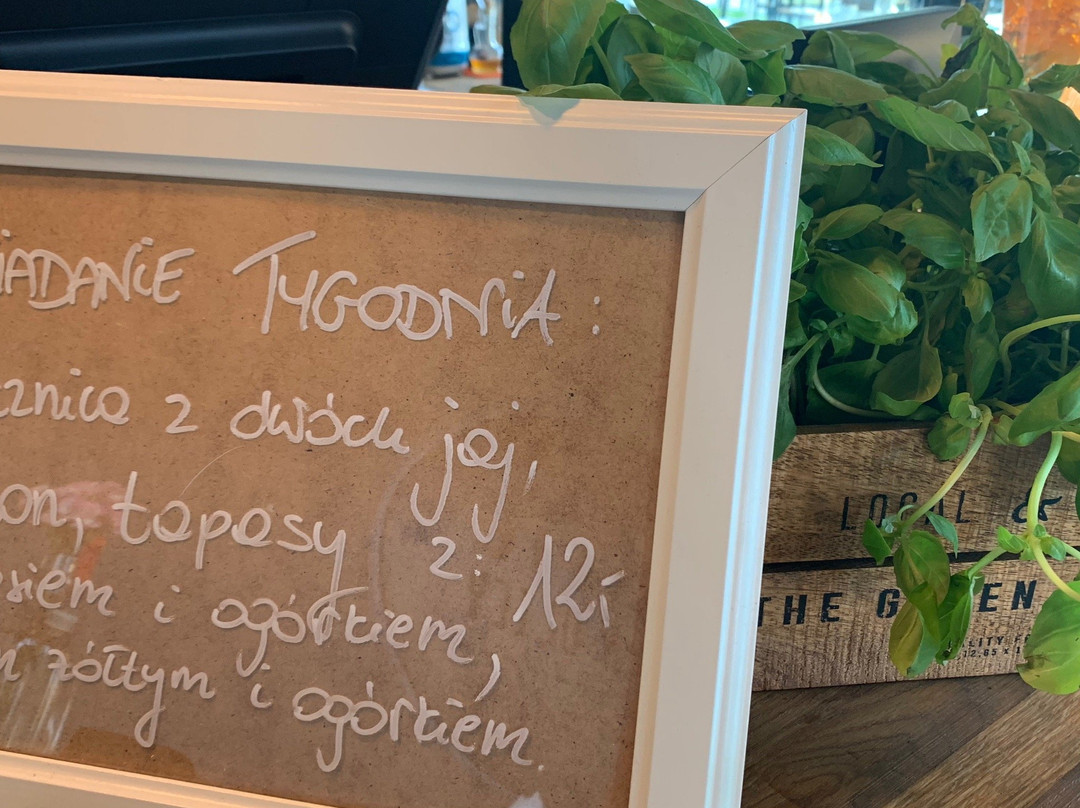 IADANIE TYGODNIA:
cznica z dwóch jaj,
on, topasy z: 12,-
siem i ogórkiem,
m żółtym i ogórkiem.
LOCAL &
THE G EN
LITY F
12.65 x 1